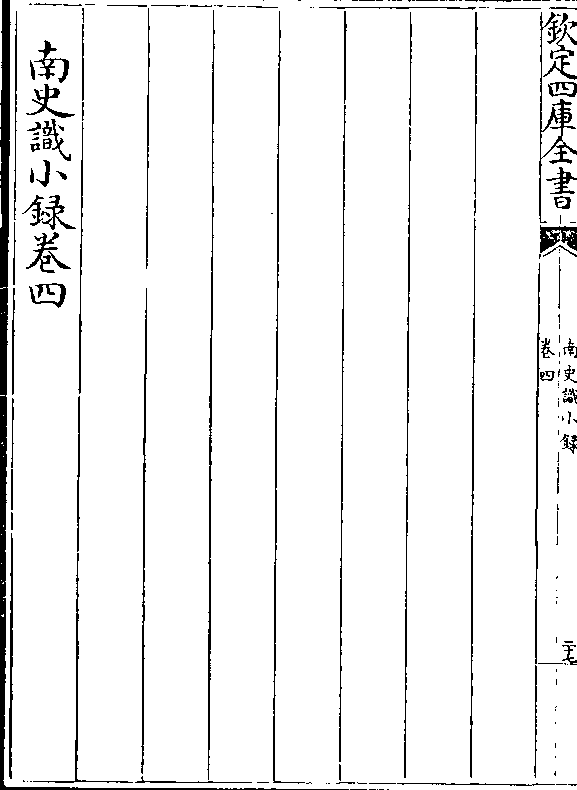 欽定四庫全書
南史識小録
卷四
二十七
南史識小録卷四